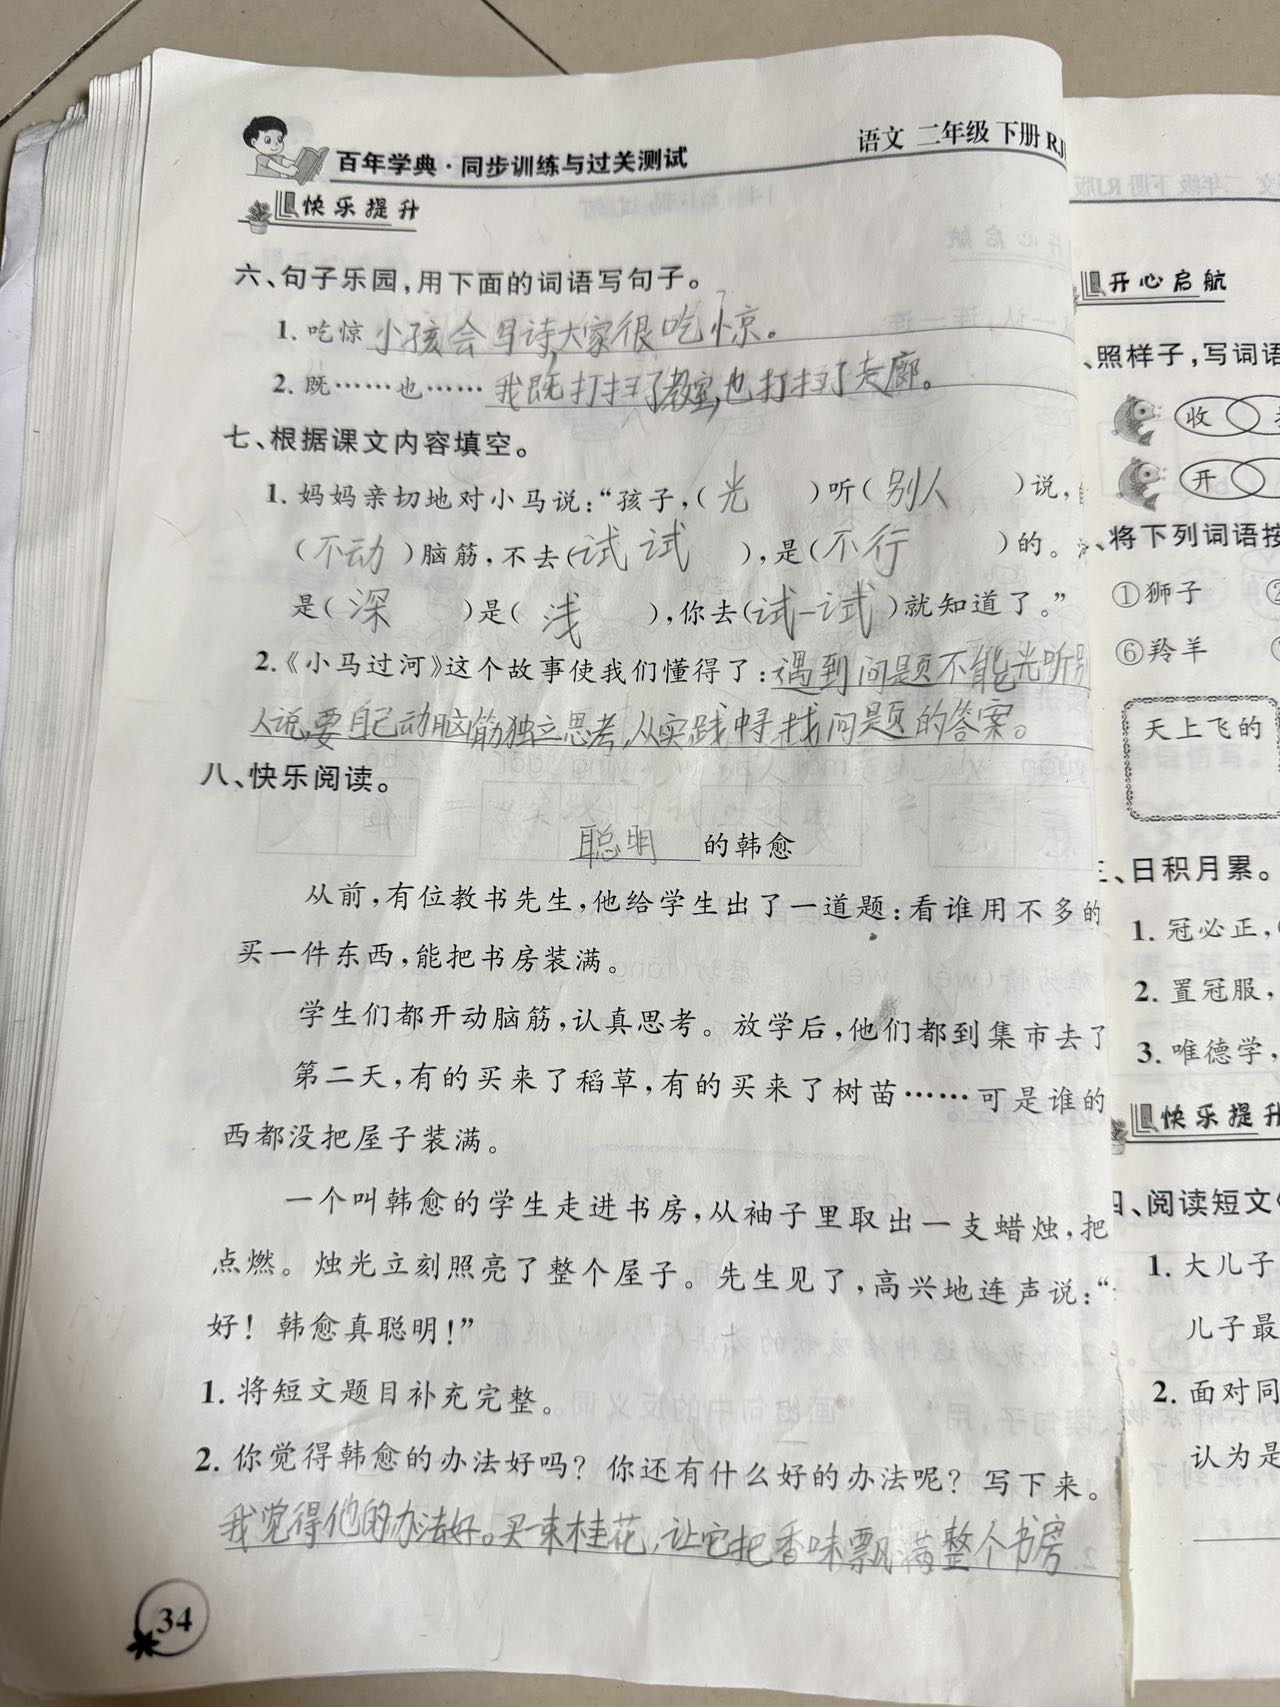 百年学典·同步训练与过关测试
语文 二年级 下册 RJ
快乐提升
六、句子乐园，用下面的词语写句子。
1. 吃惊 小孩会写诗，大家很吃惊。
2. 既……也…… 我既打扫了教室，也打扫了走廊。
七、根据课文内容填空。
1. 妈妈亲切地对小马说：“孩子，（光）听（别人）说，
（不动）脑筋，不去（试试），是（不行）的。
是（深）是（浅），你去（试一试）就知道了。”
2.《小马过河》这个故事使我们懂得了：遇到问题不能光听别
人说，要自己动脑筋独立思考，从实践中寻找问题的答案。
八、快乐阅读。
聪明 的韩愈
从前，有位教书先生，他给学生出了一道题：看谁用不多的
买一件东西，能把书房装满。
学生们都开动脑筋，认真思考。放学后，他们都到集市去了
第二天，有的买来了稻草，有的买来了树苗……可是谁的
西都没把屋子装满。
一个叫韩愈的学生走进书房，从袖子里取出一支蜡烛，把
点燃。烛光立刻照亮了整个屋子。先生见了，高兴地连声说：“
好！韩愈真聪明！”
1. 将短文题目补充完整。
2. 你觉得韩愈的办法好吗？你还有什么好的办法呢？写下来。
我觉得他的办法好。买一束桂花，让它把香味飘满整个书房
34
开心启航
、照样子，写词语
收
开
、将下列词语按
①狮子
⑥羚羊
天上飞的
、日积月累。
1. 冠必正，
2. 置冠服，
3. 唯德学，
快乐提升
、阅读短文
1. 大儿子
儿子最
2. 面对同
认为是